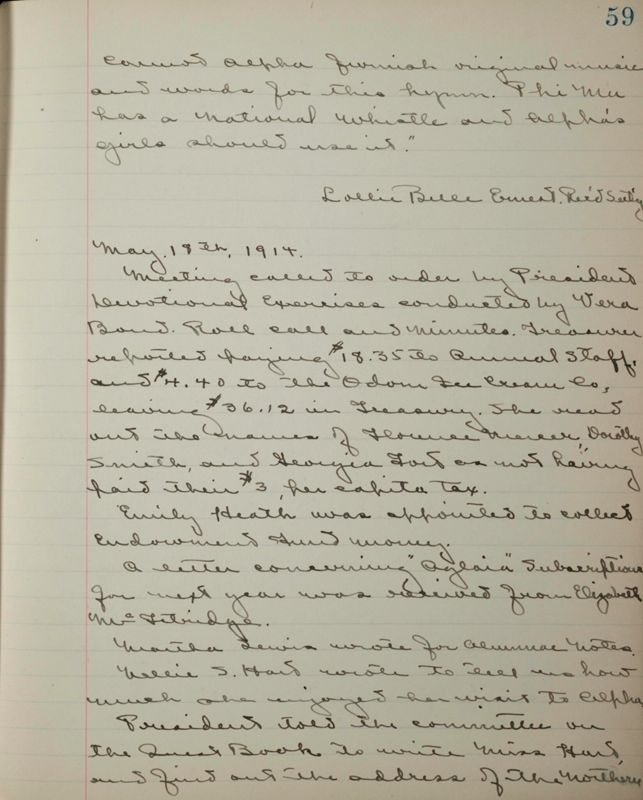 59
cannot Alpha furnish original music
and words for this hymn. Phi Mu
has a National Whistle and Alpha's
girls should use it."
Lollie Belle Ernest. Rec'd Sect'y
May. 18th, 1914.
Meeting called to order by President
Devotional Exercises conducted by Vera
Bond. Roll call and Minutes. Treasurer
reported paying $18.35 to Annual Staff,
and $4.40 to the Odom Ice Cream Co,
leaving $36.12 in Treasury. She read
out the names of Florence Mercer, Dorothy
Smith, and Georgia Fort as not having
paid their $3, per capita tax.
Emily Heath was appointed to collect
Endowment Fund money.
A letter concerning "Aglaia" Subscriptions
for next year was received from Elizabeth
Mc
Martha Lewis wrote for Alumnae Notes.
Nellie S. Hart wrote to tell us how
much she enjoyed her visit to Alpha
President told the committee on
the Guest Book to write Miss Hart,
and find out the address of the Northern